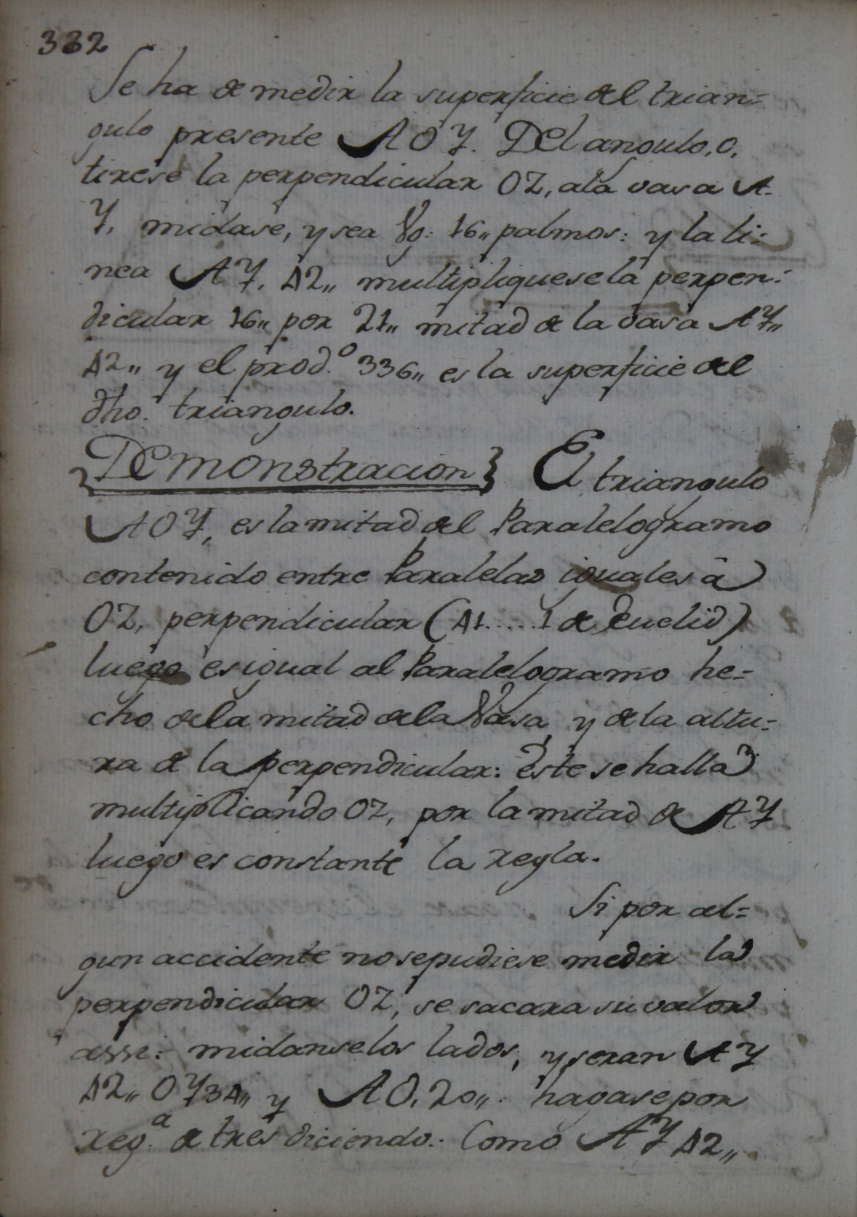 332
Se ha de medir la superficie del trian=
gulo presente AOY. Del angulo, o,
tirese la perpendicular OZ, ala vasa A
Y, midase, y sea Vg: 16,, palmos: y la li=
nea AY, 42,, multipliquese la perpen=
dicular 16,, por 21,, mitad de la vasa AY,,
42,, y el prod.º 336,, es la superficie del
dho. triangulo.
{Demonstracion} El triangulo
AOY, es la mitad del Paralelogramo
contenido entre Paralelas iguales â
OZ, perpendicular (41.....1 de Euclid)
luego es igual al Paralelogramo he=
cho de la mitad de la Vasa, y de la altu=
ra de la perpendicular: Este se halla
multiplicando OZ, por la mitad de AY
luego es constante la regla.
Si por al=
gun accidente no se pudiese medir la
perpendicular OZ, se sacara su valor
assi: midanse los lados, y seran AY
42,, OY 34,, y AO, 20,, hagase por
reg.ª de tres diciendo: Como AY 42,,